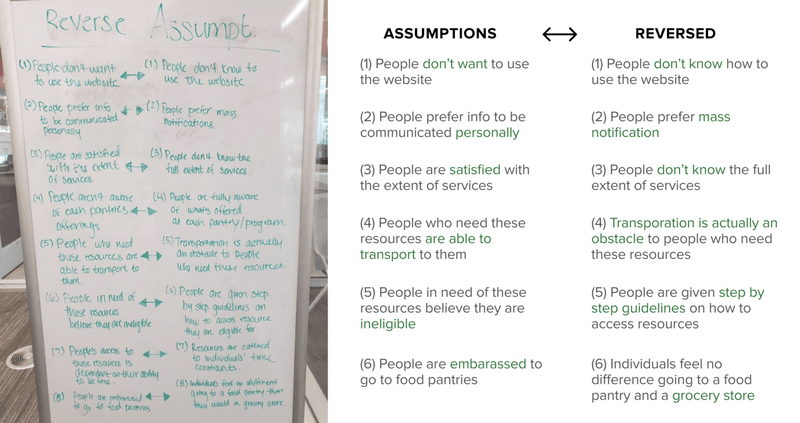 Reverse Assumpt.
(1) People don't want
to use the website
(1) People don't know to
use the website
(2) People prefer info
to be communicated
personally
(2) People prefer mass
notifications.
(3) People are satisfied
with the extent
of services.
(3) People don't know the
full extent of services.
(4) People aren't aware
of each pantries
offerings
(4) People are fully aware
of what's offered
at each pantry/program.
(5) People who need
these resources are
able to transport to
them
(5) Transportation is actually
an obstacle to people
who need these resources.
(6) People in need of
these resources
believe they are ineligible
(6) People are given step
by step guidelines on
how to access resource
they are eligible for
(7) People's access to
these resources is
dependent on their ability
to be time
(7) Resources are catered
to individuals' time
constraints.
(8) People are embarrassed
to go to food pantries
(8) Individuals feel no difference
going to a food pantry than
they would a grocery store
ASSUMPTIONS
REVERSED
(1) People don't want to use
the website
(1) People don't know how to
use the website
(2) People prefer info to be
communicated personally
(2) People prefer mass
notification
(3) People are satisfied with
the extent of services
(3) People don't know the full
extent of services
(4) People who need these
resources are able to
transport to them
(4) Transporation is actually an
obstacle to people who need
these resources
(5) People in need of these
resources believe they are
ineligible
(5) People are given step by
step guidelines on how to
access resources
(6) People are embarassed to
go to food pantries
(6) Individuals feel no
difference going to a food
pantry and a grocery store